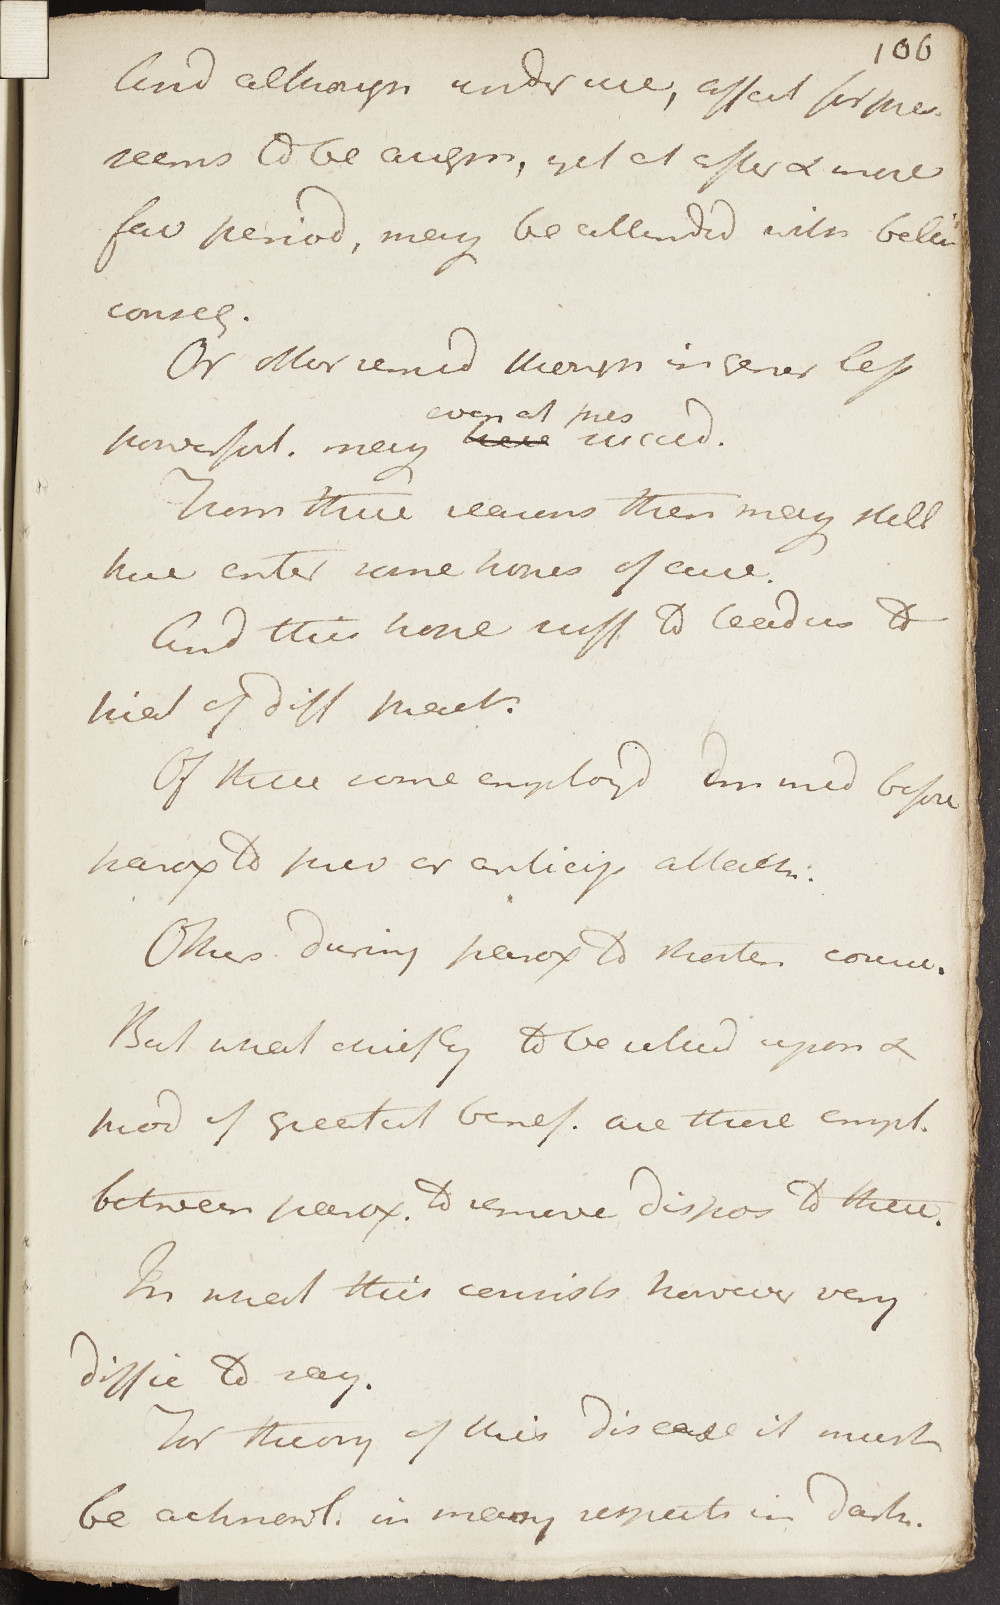 106
And although under use, affect for pre
seems to be augm, yet at after & more
fav period, may be attended with better
conseq.
Or other remed though in gener less
powerful. may even at pres succeed.
From these reasons then may still
here enter some hopes of cure.
And this hope suff to lead us to
trial of diff pract.
Of these some employ'd imMed before
parox to prev or anticip attack.
Others during parox to shorten course.
But what chiefly to be relied upon &
prod of greatest benef. are those empl.
between parox. to remove dispos to these.
In what this consists however very
diffic to say.
For theory of this disease it must
be acknowl. in many respects in dark.